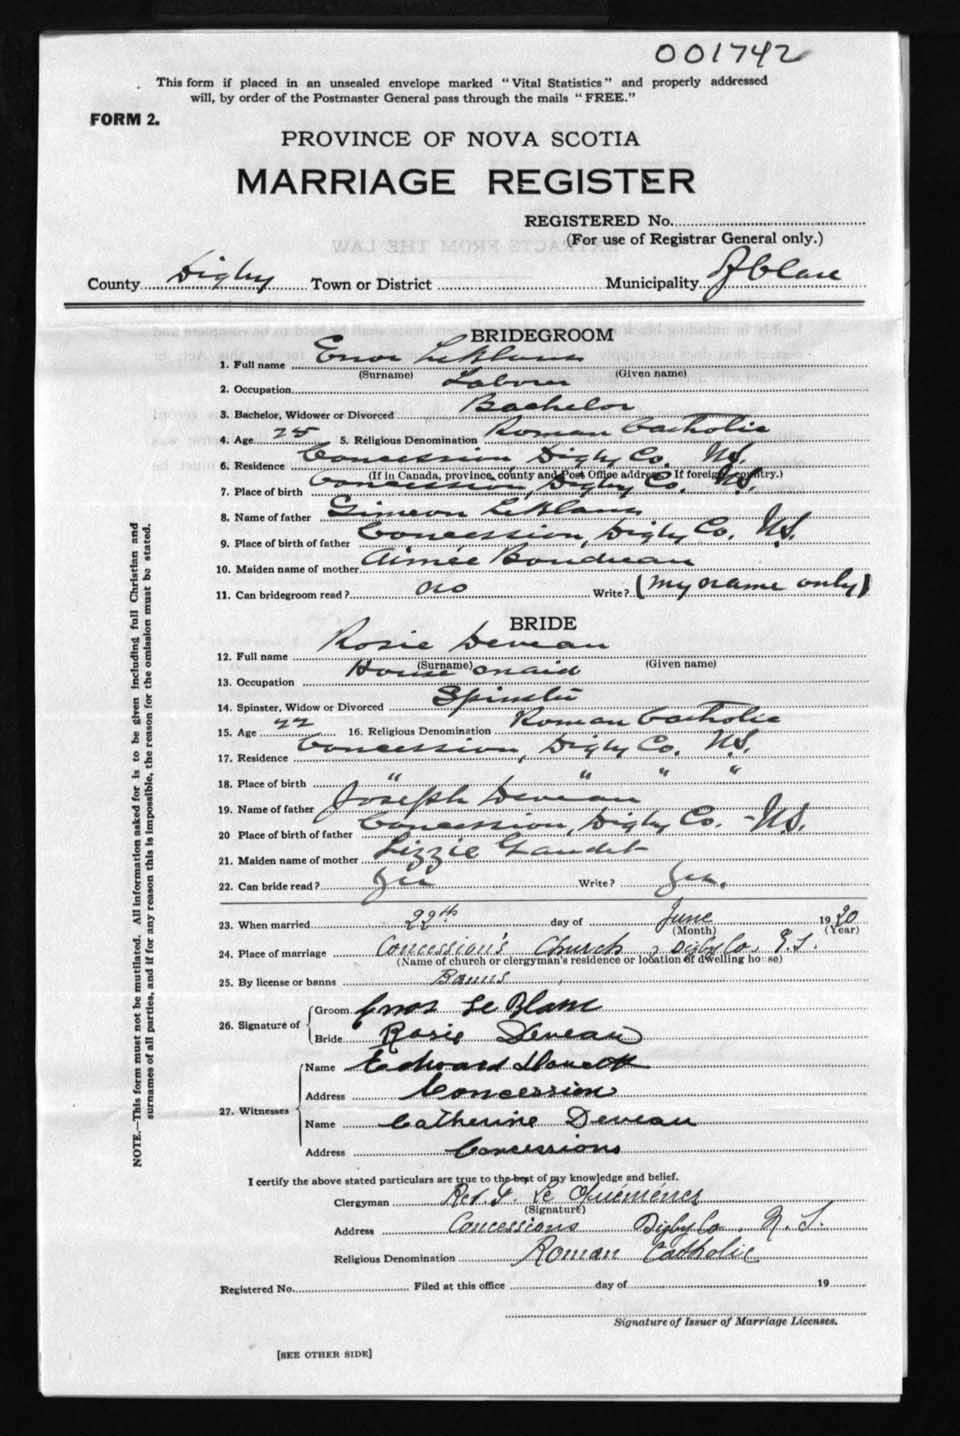 001742
This form if placed in an unsealed envelope marked "Vital Statistics" and properly addressed
will, by order of the Postmaster General pass through the mails "FREE."
FORM 2.
PROVINCE OF NOVA SCOTIA
MARRIAGE REGISTER
REGISTERED No.
(For use of Registrar General only.)
County Digby Town or District Municipality Clare
BRIDEGROOM
1. Full name Enos LeBlanc
(Surname) (Given name)
2. Occupation Laborer
3. Bachelor, Widower or Divorced Bachelor
4. Age 25 5. Religious Denomination Roman Catholic
6. Residence Concession Digby Co. N.S.
(If in Canada, province, county and Post Office address. If foreign, country.)
7. Place of birth Concession, Digby Co. N.S.
8. Name of father Simeon LeBlanc
9. Place of birth of father Concession, Digby Co. N.S.
10. Maiden name of mother Aimée Boudreau
11. Can bridegroom read? no Write? (my name only)
BRIDE
12. Full name Rosie Deveau
(Surname) (Given name)
13. Occupation House maid
14. Spinster, Widow or Divorced Spinster
15. Age 22 16. Religious Denomination Roman Catholic
17. Residence Concession, Digby Co. N.S.
18. Place of birth " " " "
19. Name of father Joseph Deveau
20 Place of birth of father Concession, Digby Co. - N.S.
21. Maiden name of mother Lizzie Gaudet
22. Can bride read? Yes Write? Yes.
23. When married 22th day of June 1920
(Month) (Year)
24. Place of marriage Concession's Church, Digby Co. N.S.
(Name of church or clergyman's residence or location of dwelling house)
25. By license or banns Banns
26. Signature of Groom Enos Le Blanc
Bride Rosie Deveau
27. Witnesses Name Edward
Address Concession
Name Catherine Deveau
Address Concessions
I certify the above stated particulars are true to the best of my knowledge and belief.
Clergyman Rev. Le Quéméner
(Signature)
Address Concessions Digby Co. N.S.
Religious Denomination Roman Catholic
Registered No. Filed at this office day of 19
Signature of Issuer of Marriage Licenses.
[SEE OTHER SIDE]
NOTE.—This form must not be mutilated. All information asked for is to be given including full Christian and
surnames of all parties, and if for any reason this is impossible, the reason for the omission must be stated.